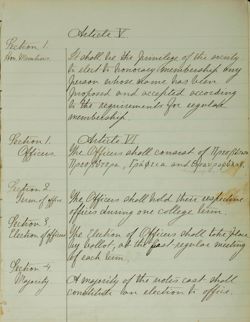 Article V
Section 1.
Hon. Members
It shall be the privilege of the society
to elect to honorary membership any
person whose name has been
proposed and accepted according
to the requirements for regular
membership.
Section 1. Article VI
Officers. The Officers shall consist of
and
Section 2
Term of office The Officers shall hold their respective
offices during one college term.
Section 3
Election of officers The Election of Officers shall take place
by ballot, at the last regular meeting
of each term.
Section 4
Majority A majority of the votes cast shall
constitute an election to office.